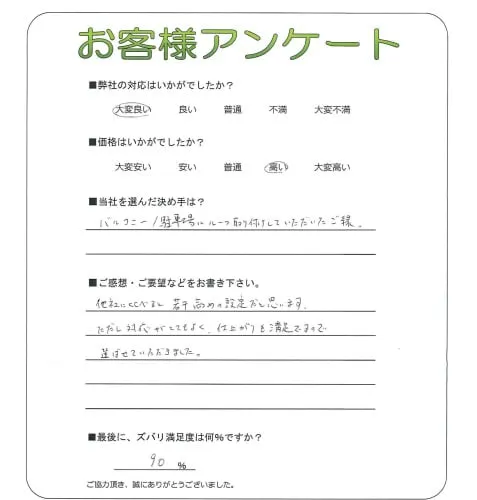 お客様アンケート
■弊社の対応はいかがでしたか？
大変良い 良い 普通 不満 大変不満
■価格はいかがでしたか？
大変安い 安い 普通 高い 大変高い
■当社を選んだ決め手は？
バルコニー/駐車場にルーフ取り付けしていただいたご縁。
■ご感想・ご要望などをお書き下さい。
他社にくらべると 若干 高めの設定だと思います。
ただし 対応がとてもよく、仕上がりも満足ですので
選ばせていただきました。
■最後に、ズバリ満足度は何%ですか？
90 %
ご協力頂き、誠にありがとうございました。